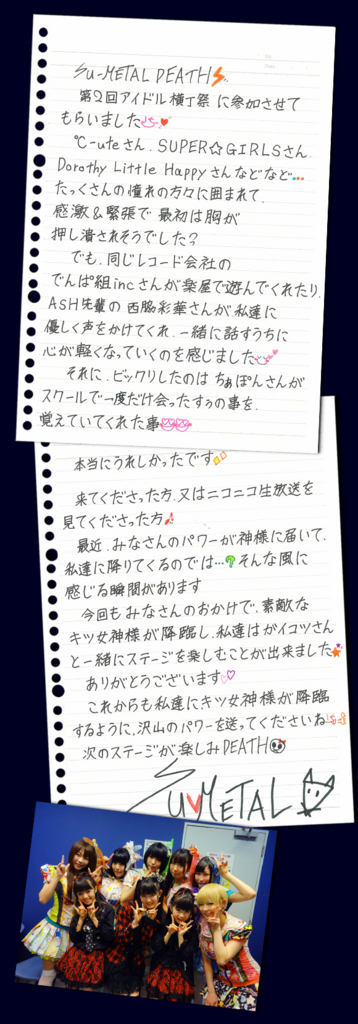 SU-METAL DEATH
第2回アイドル横丁祭 に参加させて
もらいました
℃-uteさん. SUPER☆GIRLSさん.
Dorothy Little Happyさんなどなど...
たっくさんの憧れの方々に囲まれて.
感激&緊張で 最初は胸が
押し潰されそうでした?
でも. 同じレコード会社の
でんぱ組incさんが楽屋で遊んでくれたり.
ASH先輩の 西脇彩華さんが 私達に
優しく声をかけてくれ. 一緒に話すうちに
心が軽くなっていくのを感じました
それに. ビックリしたのは ちぁぽんさんが
スクールで一度だけ会ったすぅの事を.
覚えていてくれた事
本当にうれしかったです
来てくださった方. 又はニコニコ生放送を
見てくださった方
最近. みなさんのパワーが神様に届いて.
私達に降りてくるのでは…? そんな風に
感じる瞬間があります
今回もみなさんのおかげで. 素敵な
キツ女神様が降臨し. 私達はガイコツさん
と一緒にステージを楽しむことが出来ました
ありがとうございます♡
これからも私達にキツ女神様が降臨
するように. 沢山のパワーを送ってくださいね
次のステージが楽しみDEATH
SU♥METAL